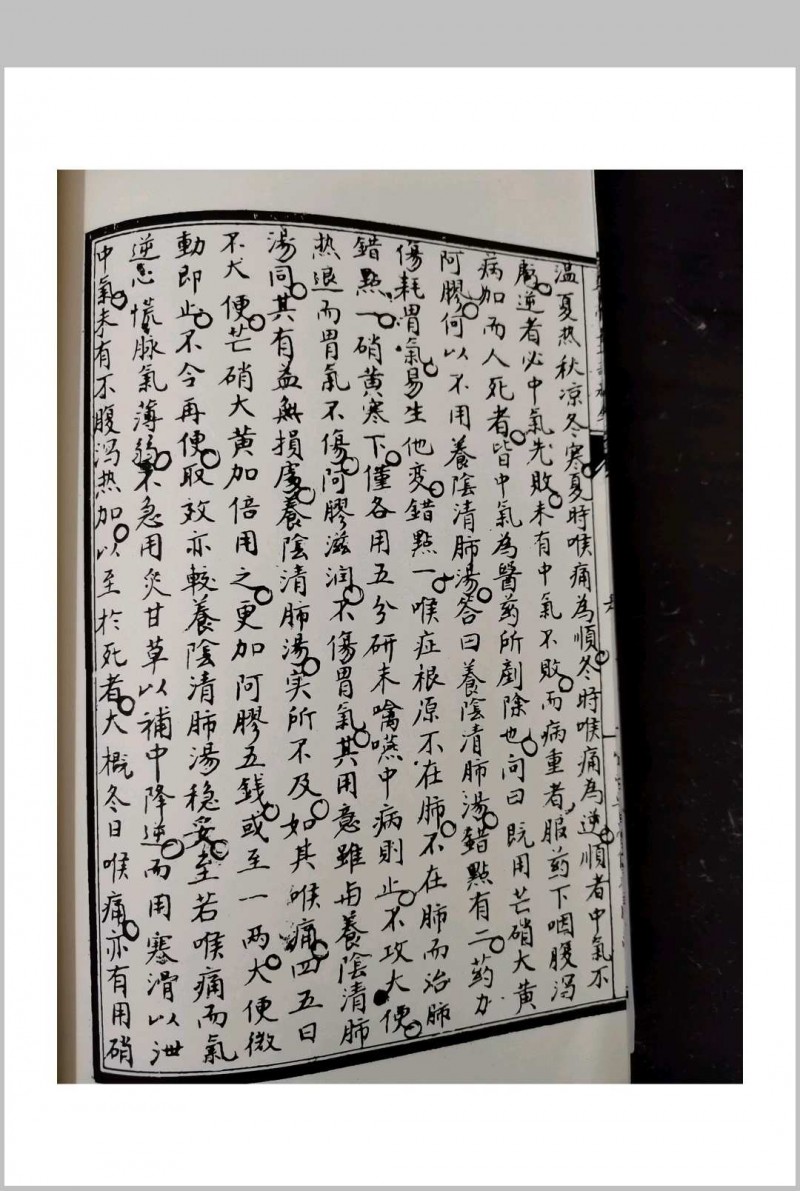 温夏热秋凉冬寒夏時喉痛為順冬時喉痛為逆順者中氣不
虧逆者必中氣先敗未有中氣不敗而病重者服药下咽腹瀉
病加而人死者皆中氣為醫药所剷除也问曰既用芒硝大黄
阿膠何以不用養陰清肺湯荅曰養陰清肺湯錯點有二药力
傷耗胃氣易生他变錯點一喉症根原不在肺不在肺而治肺
錯點一硝黄寒下僅各用五分研末噙嚥中病則止不攻大便
热退而胃氣不傷阿膠滋润不傷胃氣其用意雖与養陰清肺
湯同其有益無損處養陰清肺湯实所不及如其喉痛四五日
不大便芒硝大黄加倍用之更加阿膠五銭或至一两大便微
動即止不令再便取效亦較養陰清肺湯稳妥至若喉痛而氣
逆心慌脉氣薄弱不急用炙甘草以補中降逆而用寒滑以泄
中氣未有不腹瀉热加以至於死者大概冬日喉痛亦有用硝